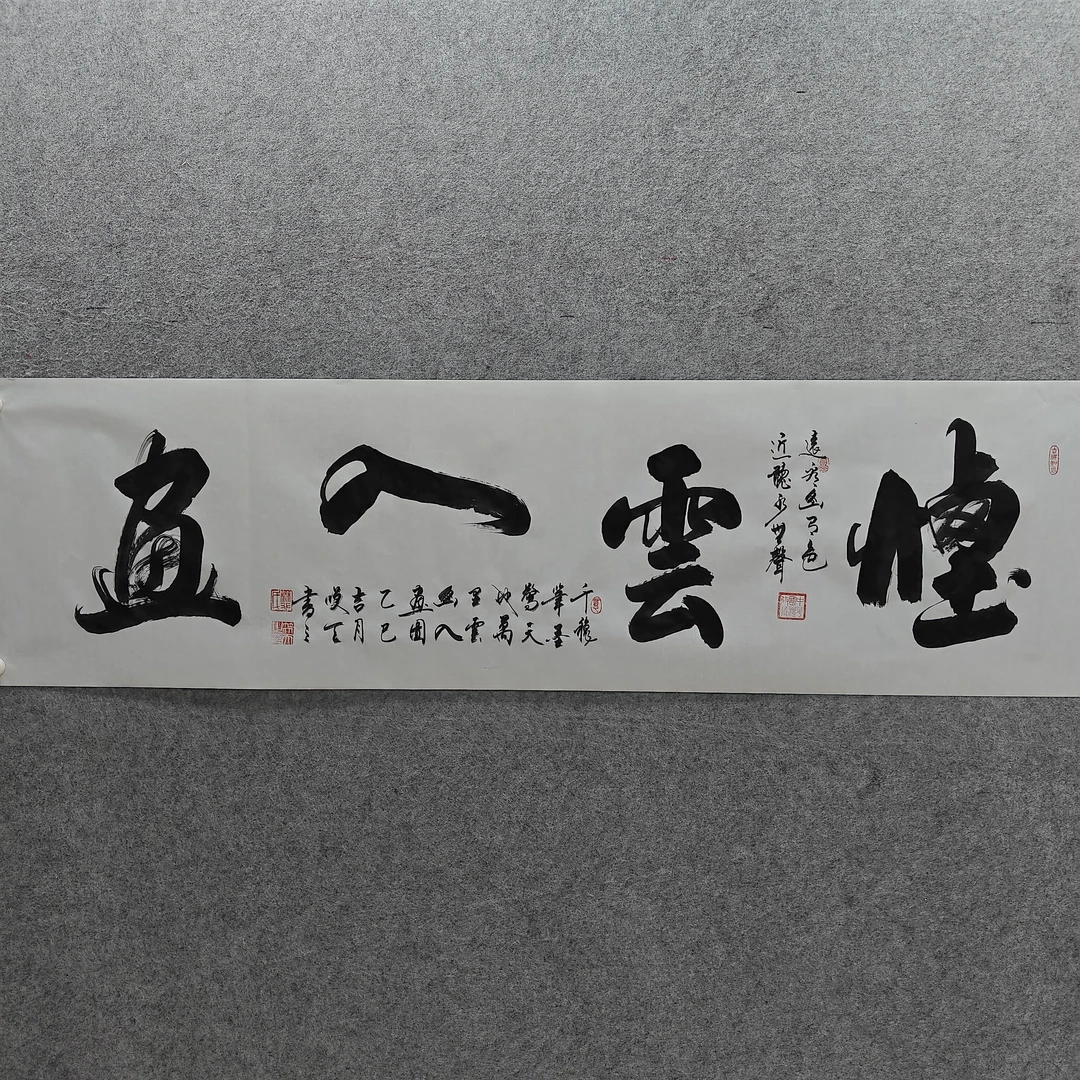 煙雲入畫
遠看山有色
近聽水無聲
千種
筆墨
驚天
地萬
里雲
山入
畫圖
乙巳
吉月
書之